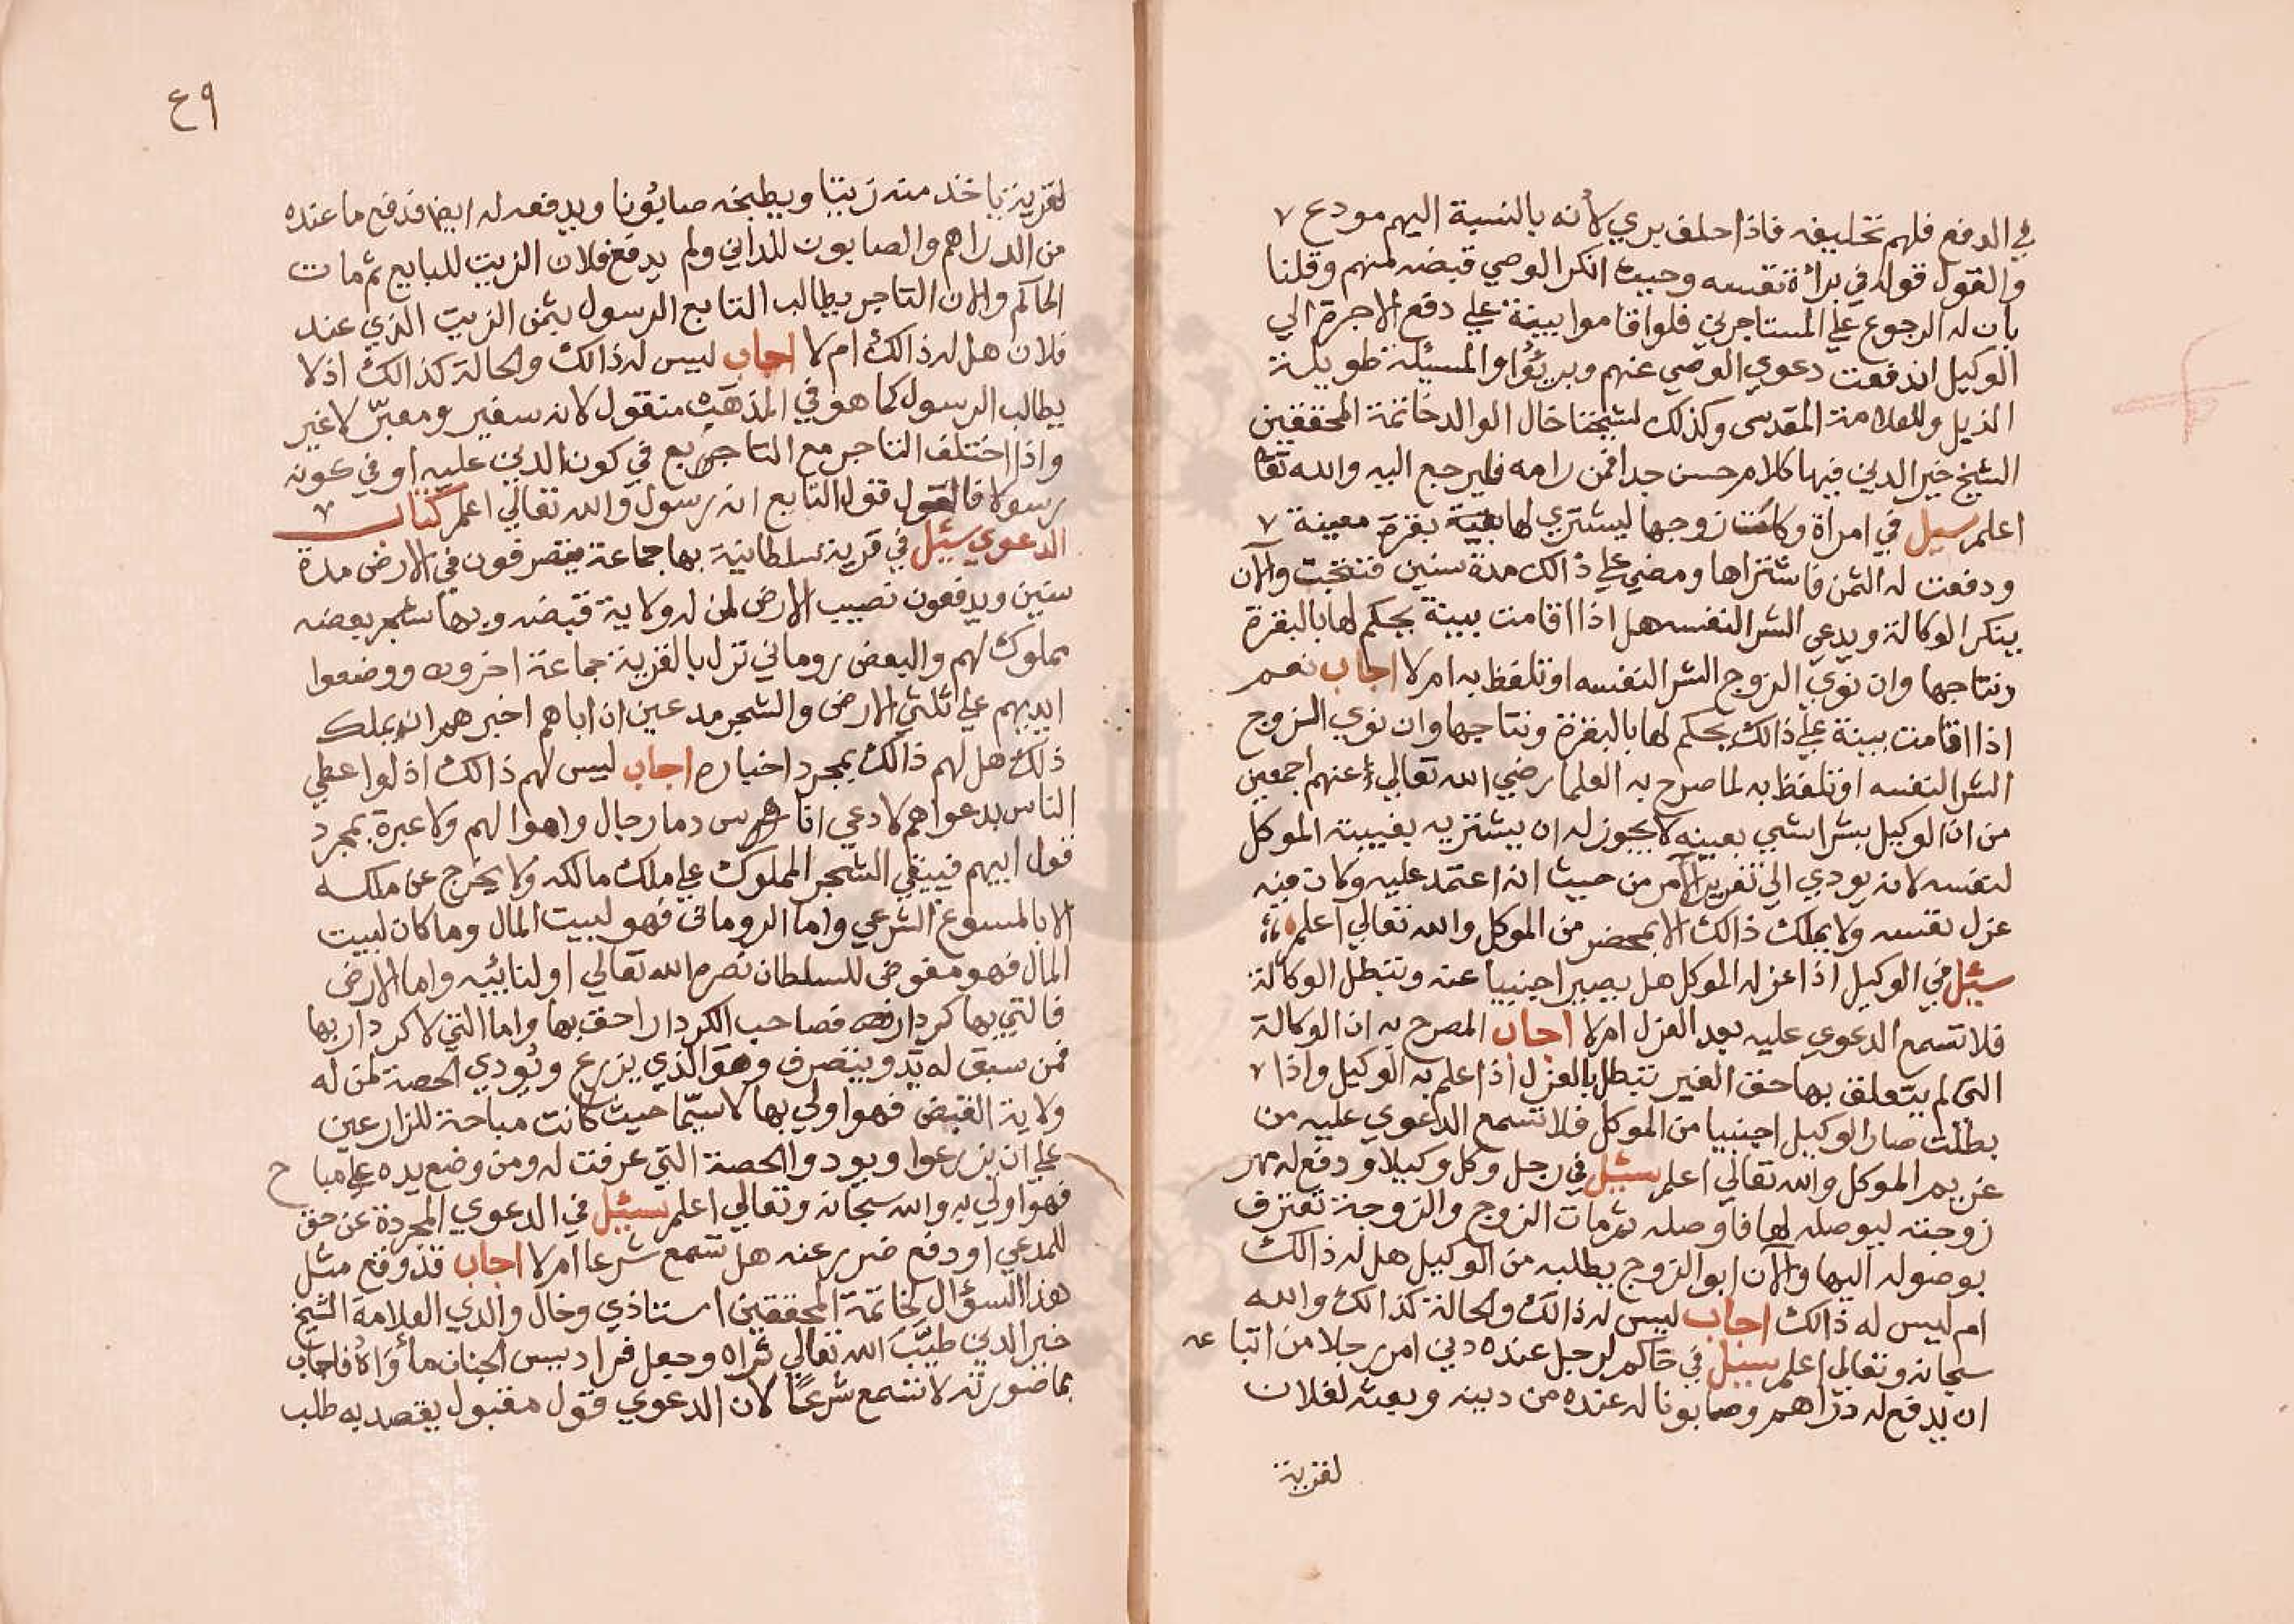 في الدفع فلهم تحليفه فاذا حلف بري لأنه بالنسبة اليهم مودع
والقول قوله في براءة نفسه وحيث انكر الوصي قبضه منهم وقلنا
بان له الرجوع علي المستاجرين فلو اقاموا بينة علي دفع الاجرة الي
الوكيل اندفعت دعوي الوصي عنهم وبريؤا والمسئلة طويلة
الذيل وللعلامة المقدسي وكذلك لشيخنا خال الوالد خاتمة المحققين
الشيخ خير الدين فيها كلام حسن جدا فمن رامه فليرجع اليه والله تعا
اعلم سيل في امراة وكلت زوجها ليشتري لها بقرة معينة
ودفعت له الثمن فاشتراها ومضي علي ذالك مدة سنين فنتجت والآن
ينكر الوكالة ويدعي الشرا لنفسه هل اذا اقامت بينة يحكم لها بالبقرة
ونتاجها وان نوي الزوج الشرا لنفسه او تلفظ به ام لا اجاب نعم
اذا اقامت بينة علي ذالك يحكم لها بالبقرة ونتاجها وان نوي الزوج
الشرا لنفسه او تلفظ به لما صرح به العلما رضي الله تعالي عنهم اجمعين
من ان الوكيل بشرا شي بعينه لا يجوز له ان يشتريه بغيبة الموكل
لنفسه لانه يودي الي تغرير الآمر من حيث انه اعتمد عليه وكان فيه
عزل نفسه ولا يملك ذالك الا بمحضر من الموكل والله تعالي اعلم
سيئل في الوكيل اذا عزله الموكل هل يصير اجنبيا عنه وتبطل الوكالة
فلا تسمع الدعوي عليه بعد العزل ام لا اجاب المصرح به ان الوكالة
التي لم يتعلق بها حق الغير تبطل بالعزل اذا علم به الوكيل واذا
بطلت صار الوكيل اجنبيا من الموكل فلا تسمع الدعوي عليه من
غريم الموكل والله تعالي اعلم سيئل في رجل وكل وكيلا ودفع له مهر
زوجته ليوصله لها فاوصله ثم مات الزوج والزوجة تعترف
بوصوله اليها والآن ابو الزوج يطلبه من الوكيل هل له ذالك
ام ليس له ذالك اجاب ليس له ذالك والحالة كذالك والله
سبحانه وتعالي اعلم سيئل في حاكم لرجل عنده دين امر رجلا من اتباعه
ان يدفع له دراهم وصابونا له عنده من دينه وبعثه لفلان
لقرية
٤٩
لقرية ياخذ منه زيتا ويطبخه صابونا ويدفعه له ايضا فدفع ما عنده
من الدراهم والصابون للداين ولم يدفع فلان الزيت للبايع ثم مات
الحاكم والان التاجر يطالب التابع الرسول بثمن الزيت الذي عند
فلان هل له ذالك ام لا اجاب ليس له ذالك والحالة كذالك اذ لا
يطالب الرسول كما هو في المذهب منقول لانه سفير ومعبّر لا غير
واذا اختلف التاجر مع التابع في كون الدين عليه او في كونه
رسولا فالقول قول التابع انه رسول والله تعالي اعلم كتاب
الدعوي سئيل في قرية سلطانية بها جماعة يتصرفون في الارض مدة
سنين ويدفعون نصيب الارض لمن له ولاية قبضه وبها شجر بعضه
مملوك لهم والبعض روماني نزل بالقرية جماعة اخرون ووضعوا
ايديهم علي ثلثي الارض والشجر مدعين ان اباهم اخبرهم انه يملك
ذلك هل لهم ذالك بمجرد اخباره اجاب ليس لهم ذالك اذ لو اعطي
الناس بدعواهم لادعي اناس دما رجال واموالهم ولا عبرة بمجرد
قول ابيهم فيبقي الشجر المملوك علي ملك مالكه ولا يخرج عن ملكه
الا بالمسوغ الشرعي واما الروماني فهو لبيت المال وما كان لبيت
المال فهو مفوض للسلطان نصره الله تعالي او لنائبه واما الارض
فالتي بها كردار فصاحب الكردار احق بها واما التي لا كردار بها
فمن سبق له يد ويتصرف وهو الذي يزرع ويودي الحصة لمن له
ولاية القبض فهو اولي بها لا سيّما حيث كانت مباحة للزارعين
علي ان يزرعوا ويودوا الحصة التي عرفت له ومن وضع يده علي مباح
فهو اولي به والله سبحانه وتعالي اعلم سيئل في الدعوي المجردة عن حق
للمدعي او دفع ضرر عنه هل تسمع شرعا ام لا اجاب قد وقع مثل
هذا السؤال لخاتمة المحققين استاذي وخال والدي العلامة الشيخ
خير الدين طيّب الله تعالي ثراه وجعل فراديس الجنان مأواه فاجاب
بما صورته لا تسمع شرعًا لان الدعوي قول مقبول يقصد به طلب